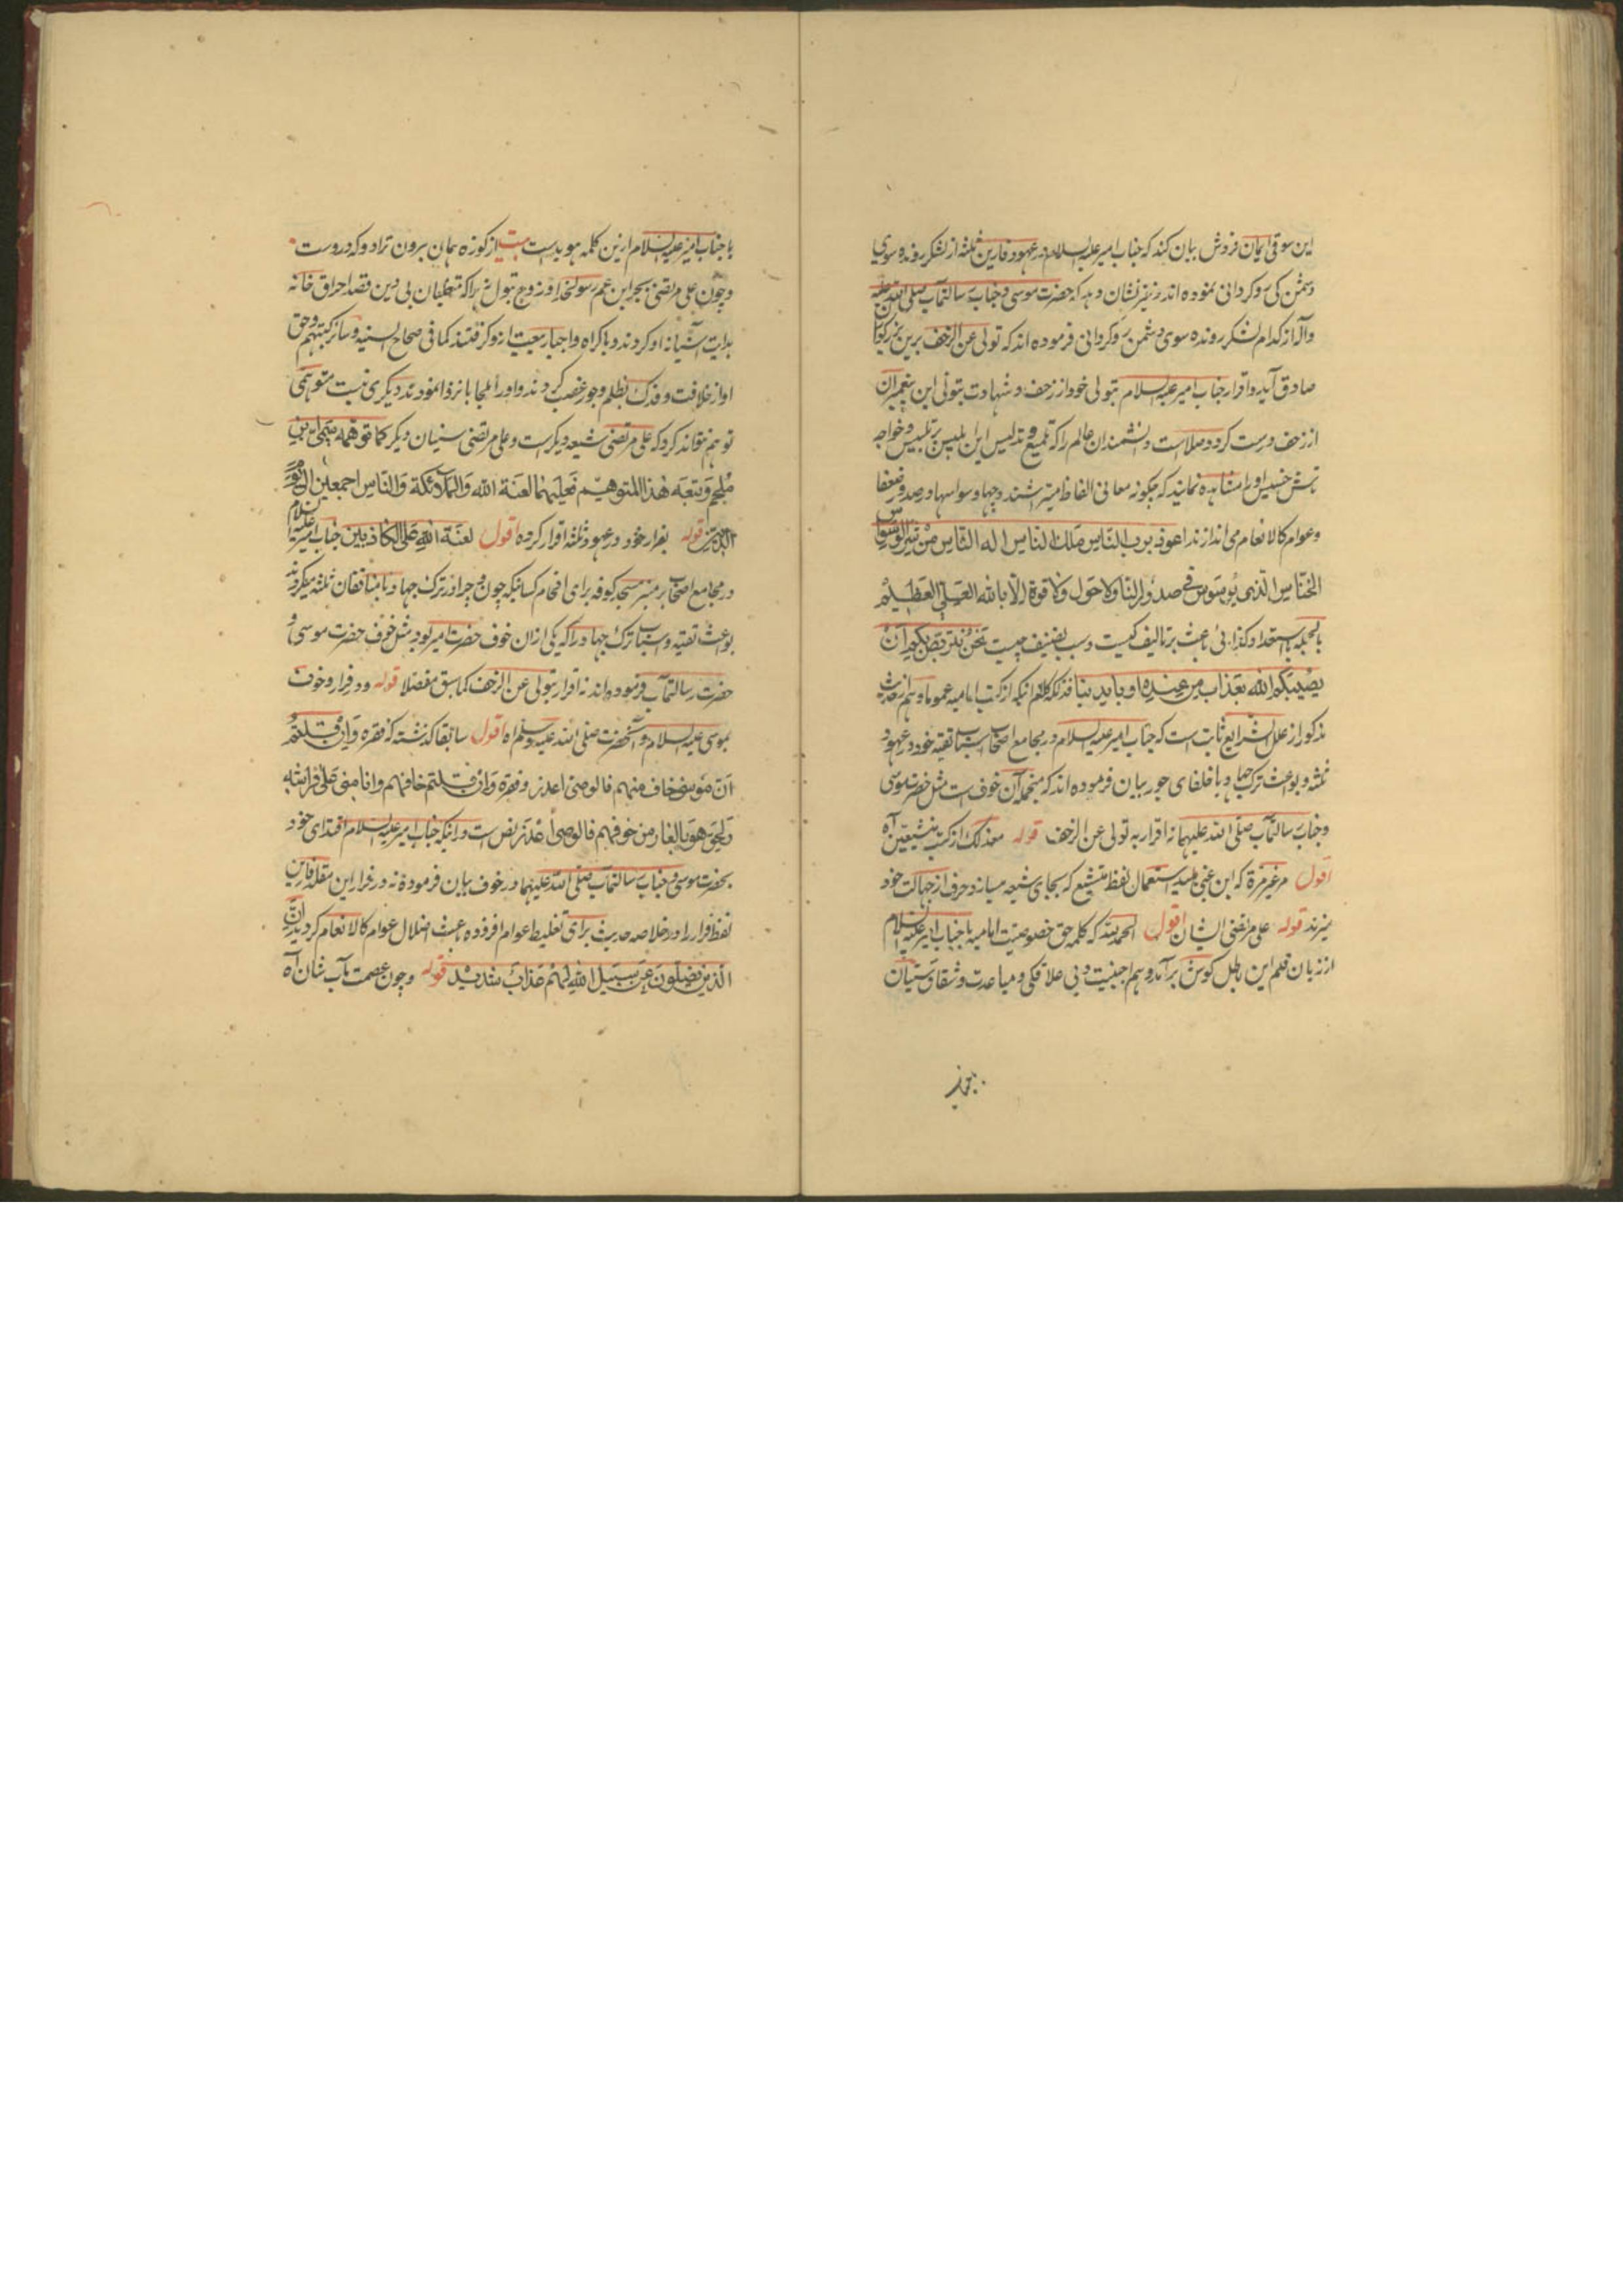 این سوقی ایمان فروش بیان کند که جناب امیر علیه السلام در عهود فارین ثلثه از لشکر رونده سوی
دشمن کی روگردانی نموده اند و نیز نشان دهد که حضرت موسی و جناب رسالتمآب صلی الله علیه
وآله از کدام لشکر رونده سوی دشمن روگردانی فرموده اند که تولی عن الزحف برین بزرگواران
صادق آید و اقرار جناب امیر علیه السلام بتولی خود از زحف و شهادت بتولی این پیغمبران
از زحف درست گردد و صلاست دانشمندان عالم را که تلمیع و تدلیس این ابلیس پر تلبیس و خواجه
خسیس او را مشاهده نمایند که چگونه معانی الفاظ میتراشند و چها وسواسها در صدور ضعفا
وعوام کالانعام می اندازند اعوذ برب الناس ملك الناس اله الناس من شر الوسواس
الخناس الذی یوسوس فی صدور الناس ولا حول ولا قوة الا بالله العلی العظیم
بالجمله استعداد کذائی باعث بر تالیف کیست و سبب تصنیف چیست نحن نتربص بکم ان
یصیبکم الله بعذاب من عنده او بایدینا فذلکه کلام آنکه از کتب امامیه عموما و هم از حدیث
مذکور از علل الشرایع ثابت است که جناب امیر علیه السلام در مجامع اصحاب اسباب تقیه خود در عهود
ثلثه و بواعث ترک جهاد با خلفای جور بیان فرموده اند که منجمله آن خوف است مثل حضرت موسی
وجناب رسالتمآب صلی الله علیهما نه اقرار به تولی عن الزحف قوله معذلک از کتب متشیعین آه
اقول مرة که این غبی بلید استعمال لفظ متشیع که بجای شیعه میسازد حرف از جهالت خود
میزند قوله علی مرتضی ایشان اقول الحمد لله که کلمه حق خصوصیت امامیه با جناب امیر علیه السلام
از زبان قلم این باطل کوش برآمد و هم اجنبیت و بی علاقگی و مباعدت و شقاق سنیان
با جناب امیر علیه السلام ازین کلمه هویداست بیت از کوزه همان برون تراود که دروست
وچون علی مرتضی بجز ابن عم رسولخدا و زوج بتول زهرا که متغلبان بی دین قصد احراق خانه
هدایت آشیانه او کردند و باکراه و اجبار بیعت ازو گرفتند کما فی صحاح السنیه و سائر کتبهم وحق
او از خلافت و فدک بظلم وجور غصب کردند و او را ملجا بانزوا نمودند دیگری نیست متوهمی
توهم نتواند کرد که علی مرتضی شیعه دیگر است و علی مرتضی سنیان دیگر کما توهمه ابن
ملجم وتبعه هذا المتوهم فعلیهما لعنة الله والملائکة والناس اجمعین الی یوم
الدین قوله بفرار خود در عهود ثلثه اقرار کرده اقول لعنة الله علی الکاذبین جناب امیر علیه السلام
در مجامع اصحاب بر منبر مسجد کوفه برای افحام کسانیکه چون و چرا در ترک جهاد با منافقان ثلثه میکردند
بواعث تقیه و اسباب ترک جهاد را که یکی ازان خوف حضرت امیر بود مثل خوف حضرت موسی و
حضرت رسالتمآب فرموده اند نه اقرار بتولی عن الزحف کما سبق مفصلا قوله و در فرار و خوف
بموسی علیه السلام و آنحضرت صلی الله علیه وسلم اه اقول سابقا گذشته که فقره وان قلتم
ان موسی خاف منهم فالوصی اعذر و فقره وان قلتم خافهم وانامنی علی فراشه
ولحق هو بالغار من خوفهم فالوصی اعذر نص است در آنکه جناب امیر علیه السلام اقتدای خود
بحضرت موسی و جناب رسالتمآب صلی الله علیهما در خوف بیان فرموده نه در فرار این مقلد فارین
لفظ فرار را در خلاصه حدیث برای تغلیط عوام افزوده باعث اضلال عوام کالانعام گردید ان
الذین یضلون عن سبیل الله لهم عذاب شدید قوله وچون عصمت مآب شان آه